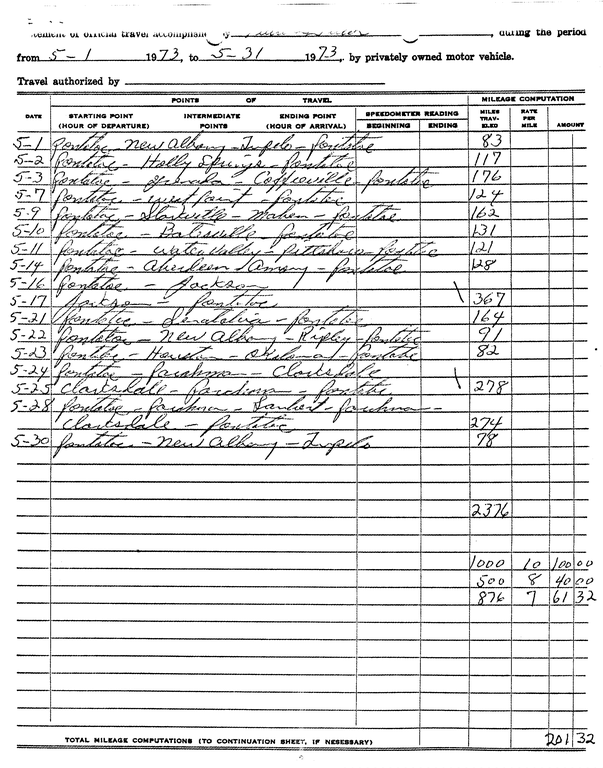 tement of official travel accomplish by , during the period
from 5-1 1973, to 5-31 1973, by privately owned motor vehicle.
Travel authorized by
POINTS OF TRAVEL MILEAGE COMPUTATION
DATE STARTING POINT (HOUR OF DEPARTURE) INTERMEDIATE POINTS ENDING POINT (HOUR OF ARRIVAL) SPEEDOMETER READING BEGINNING ENDING MILES TRAV-ELED RATE PER MILE AMOUNT
5-1 Pontotoc New Albany - Tupelo - Pontotoc 83
5-2 Pontotoc - Holly Springs - Pontotoc 117
5-3 Pontotoc - Grenada - Coffeeville - Pontotoc 176
5-7 Pontotoc - West Point - Pontotoc 124
5-9 Pontotoc - Starkville - - Pontotoc 162
5-10 Pontotoc - Batesville - Pontotoc 131
5-11 Pontotoc - Water Valley - Pittsboro - Pontotoc 121
5-14 Pontotoc - Aberdeen Amory - Pontotoc 128
5-16 Pontotoc - Jackson
5-17 Jackson - Pontotoc \ 367
5-21 Pontotoc - Senatobia - Pontotoc 164
5-22 Pontotoc - New Albany - Ripley - Pontotoc 91
5-23 Pontotoc - Houston - Okolona - Pontotoc 82
5-24 Pontotoc - Parchman - Clarksdale
5-25 Clarksdale - Parchman - Pontotoc \ 278
5-28 Pontotoc - Parchman - Lambert - Parchman -
Clarksdale - Pontotoc 274
5-30 Pontotoc - New Albany - Tupelo 78
2376
1000 10 100 00
500 8 40 00
876 7 61 32
TOTAL MILEAGE COMPUTATIONS (TO CONTINUATION SHEET, IF NESESSARY) 201 32